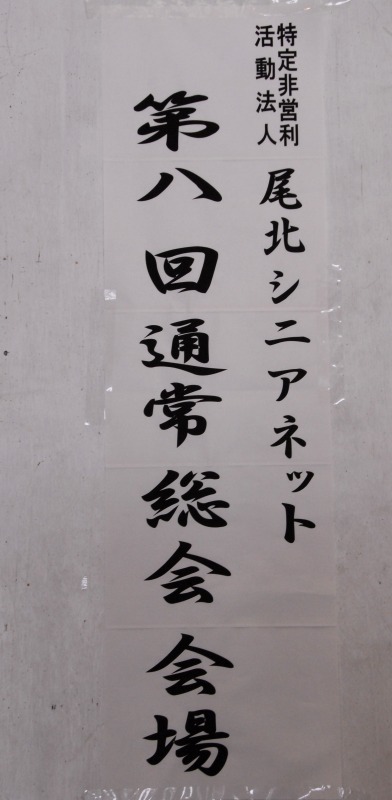 特定非営利
活動法人
尾北シニアネット
第八回通常総会会場